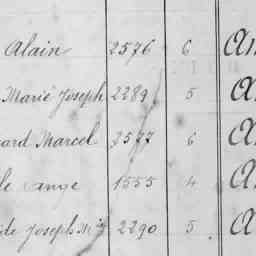 Alain 2576 6 Am
Marie Joseph 2289 5 A
ard Marcel 2577 6 A
le ange 1555 4 A
de Joseph Mie 2290 5 A